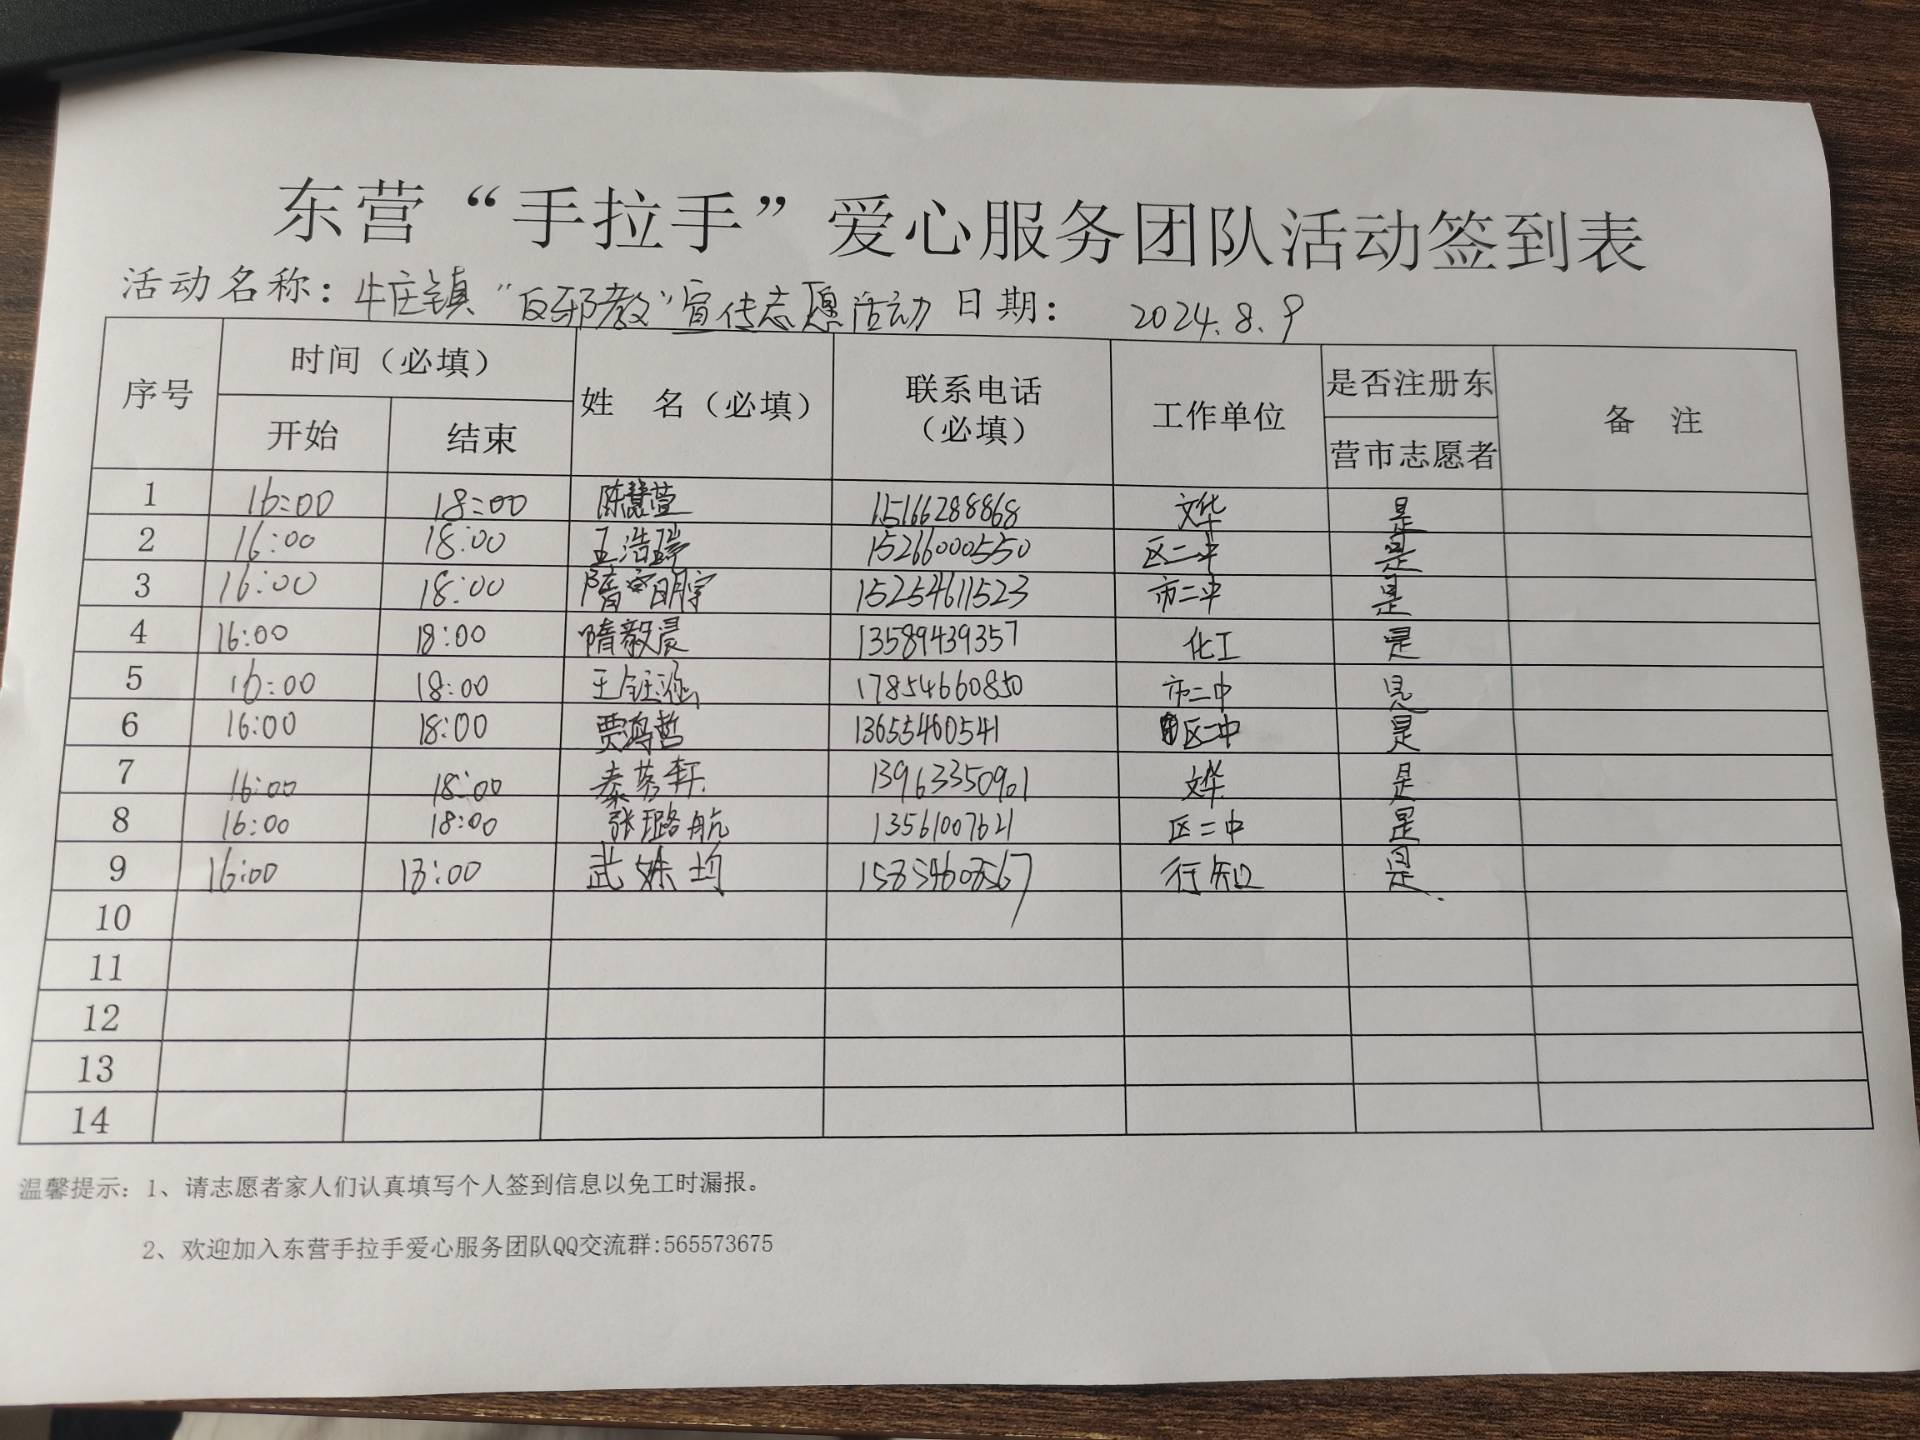 东营“手拉手”爱心服务团队活动签到表
活动名称：牛庄镇“反邪教”宣传志愿活动 日期： 2024.8.9
序号 时间（必填） 姓 名（必填） 联系电话（必填） 工作单位 是否注册东营市志愿者 备 注
开始 结束
1 16:00 18:00 陈慧萱 15166288868 文华 是
2 16:00 18:00 王浩瑞 15266000550 区二中 是
3 16:00 18:00 隋明宇 15254611523 市二中 是
4 16:00 18:00 隋毅晨 13589439357 化工 是
5 16:00 18:00 王钰涵 17854660850 市二中 是
6 16:00 18:00 贾鸿哲 13655460541 区二中 是
7 16:00 18:00 秦芳轩 13963350901 文华 是
8 16:00 18:00 张璐航 13561007621 区二中 是
9 16:00 18:00 武姝均 15854608567 行知 是
10
11
12
13
14
温馨提示：1、请志愿者家人们认真填写个人签到信息以免工时漏报。
2、欢迎加入东营手拉手爱心服务团队QQ交流群:565573675